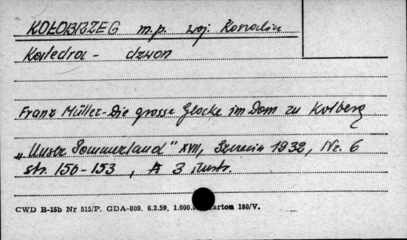 KOŁOBRZEG m.p. woj. Koszalin
Katedra - dzwon
Franz Müller - Die grosse Glocke im Dom zu Kolberg
„Unser Pommerland" XVII, Szczecin 1932, Nr. 6
str. 150-153, A 3 ilustr.
CWD B-15b Nr 515/P. GDA-809. 6.3.59, 1.000.0 karton 180/V.